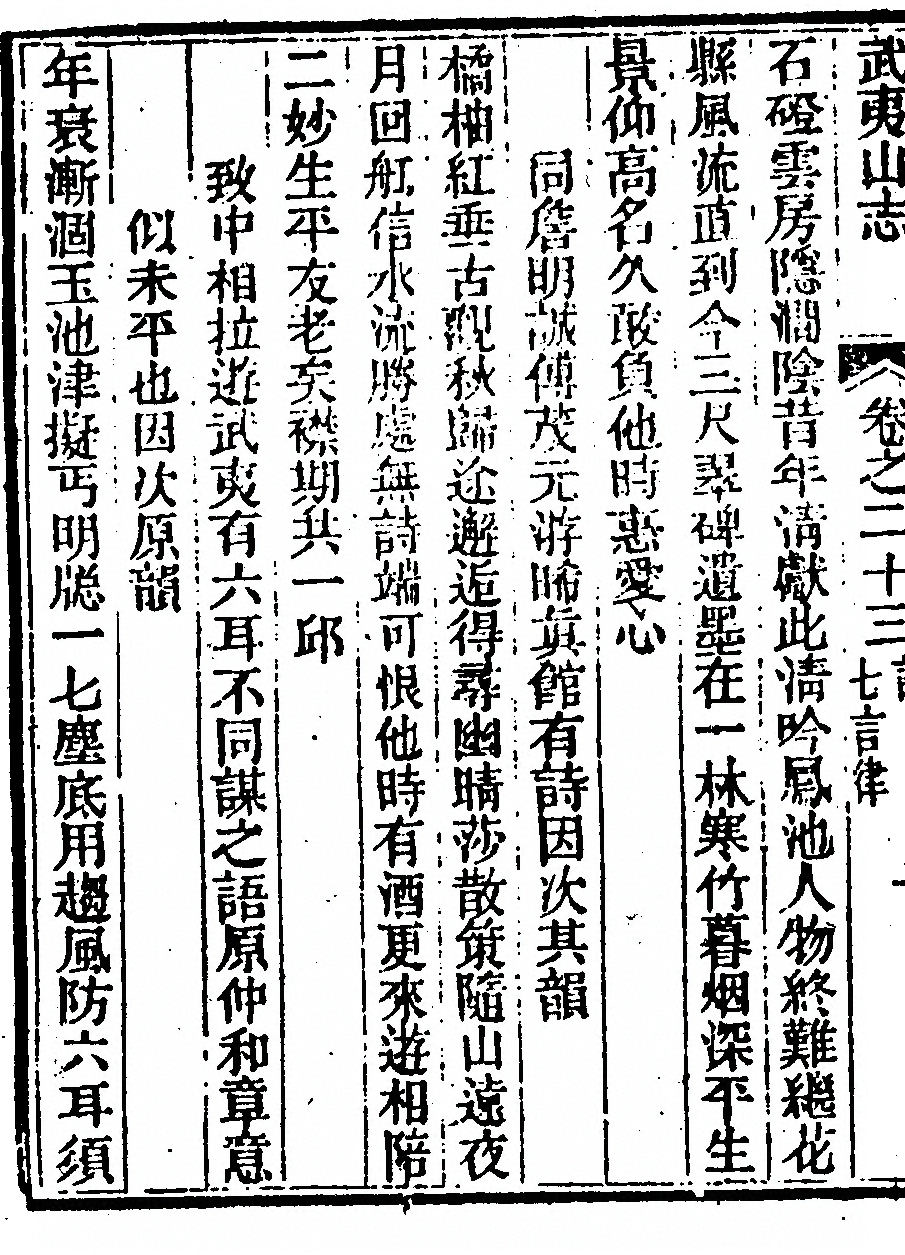 武夷山志 卷之二十三 七言律
石磴雲房隱澗陰昔年清獻此清吟鳳池人物終難繼花
縣風流直到今三尺翠碑遺墨在一林寒竹暮烟深平生
景仰高名久敢負他時惠愛心
同詹明誠傅茂元游晞眞館有詩因次其韻
橘柚紅垂古觀秋歸途邂逅得尋幽晴莎散策隨山遠夜
月回舡信水流勝處無詩端可恨他時有酒更來遊相陪
二妙生平友老矣襟期共一邱
致中相拉遊武夷有六耳不同謀之語原仲和章意
似未平也因次原韻
年衰漸涸玉池津擬丐明牕一七塵底用趨風防六耳須